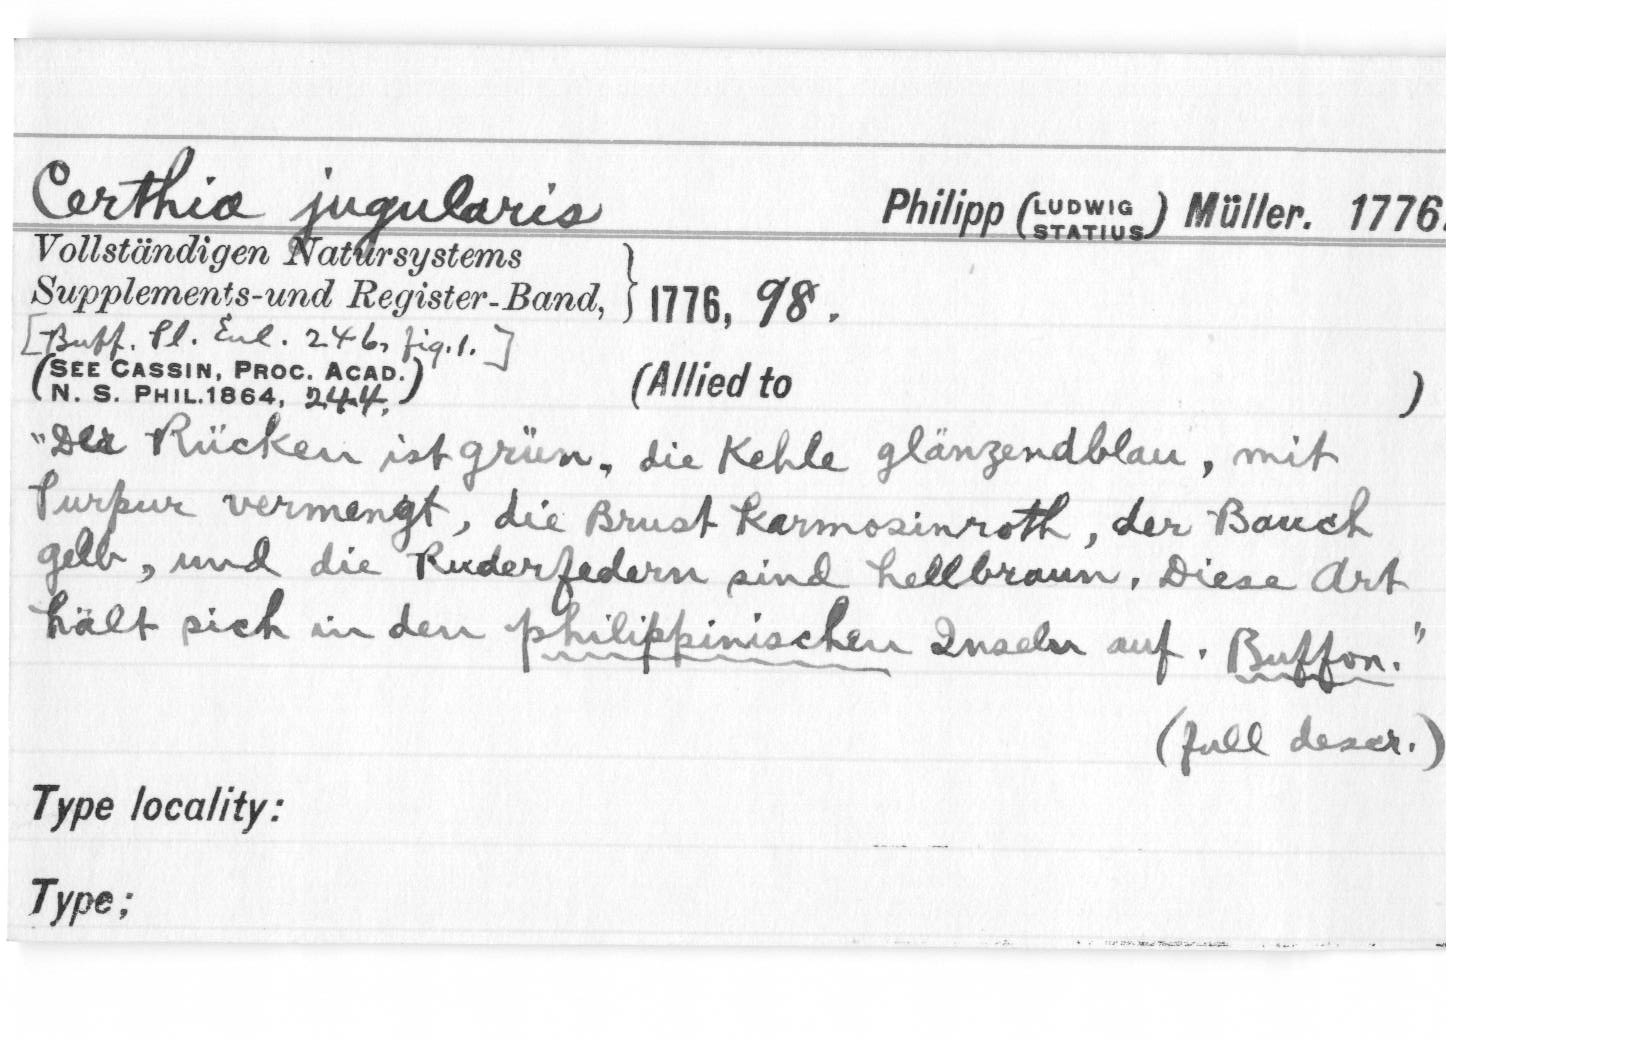 Certhia jugularis Philipp (LUDWIG STATIUS) Müller. 1776.
Vollständigen Natursystems
Supplements-und Register-Band, } 1776, 98.
[Buff. Pl. Enl. 246, fig. 1.]
(SEE CASSIN, PROC. ACAD.
N. S. PHIL. 1864, 244.) (Allied to )
"Der Rücken ist grün, die Kehle glänzendblau, mit
Purpur vermengt, die Brust karmosinroth, der Bauch
gelb, und die Ruderfedern sind hellbraun. Diese Art
hält sich in den philippinischen Inseln auf. Buffon."
(full descr.)
Type locality:
Type;